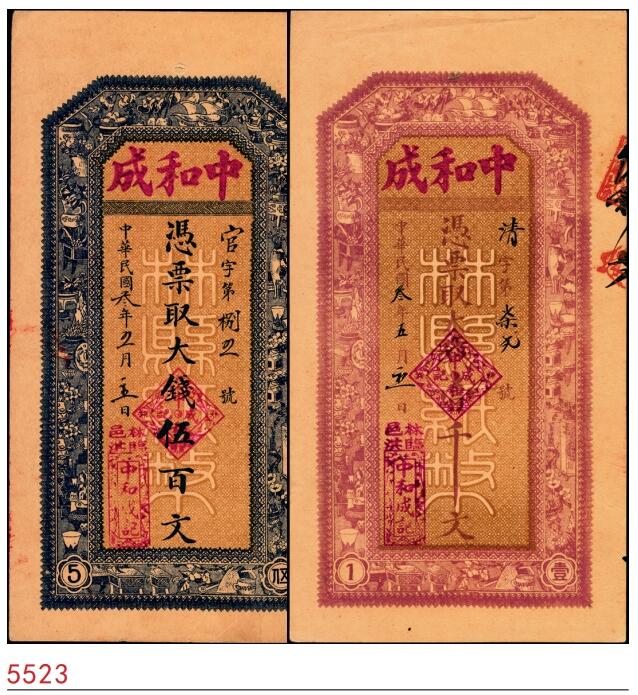 中和成
官字第捌五號
憑票取大錢伍百文
中華民國叁年五月五日
林縣紙幣
林臨
邑淇
中和成記
5
伍
中和成
清字第柒元號
憑票取大錢壹千文
中華民國叁年五月五日
林縣紙幣
林臨
邑淇
中和成記
1
壹
5523